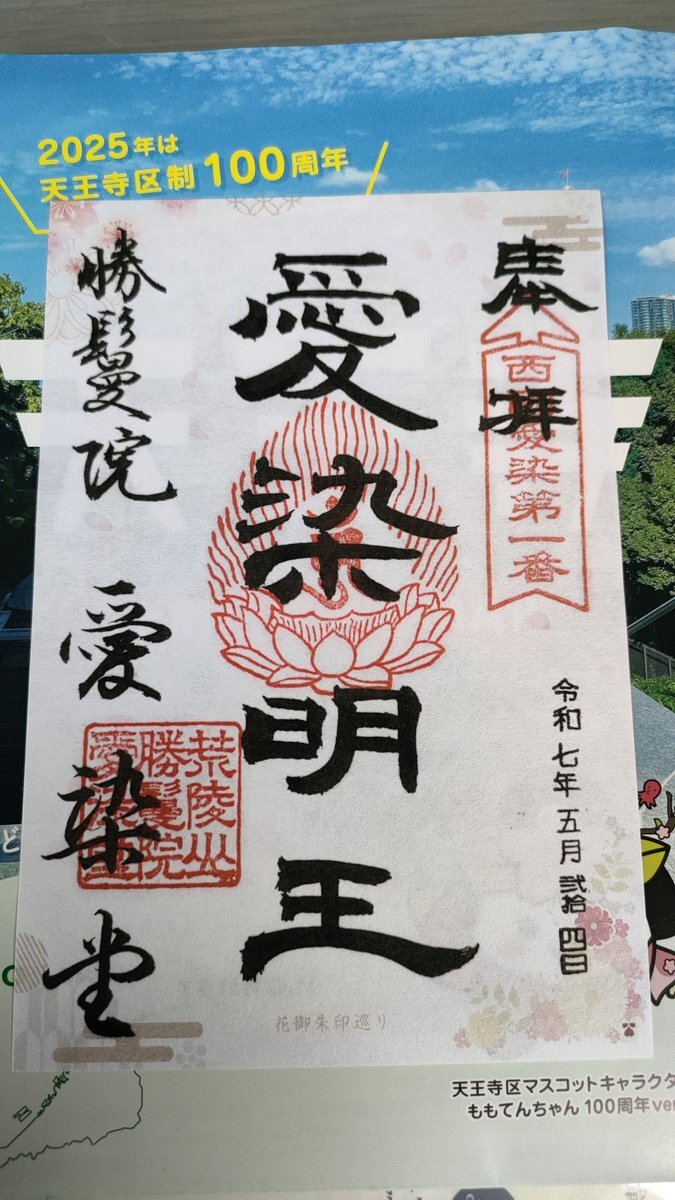 2025年は
天王寺区制 100周年
奉拝
西国愛染第一番
愛染明王
勝鬘院 愛染堂
荒陵山
勝鬘院
愛染堂
令和七年五月弐拾四日
花御朱印巡り
ど
天王寺区マスコットキャラクタ
ももてんちゃん 100周年ver